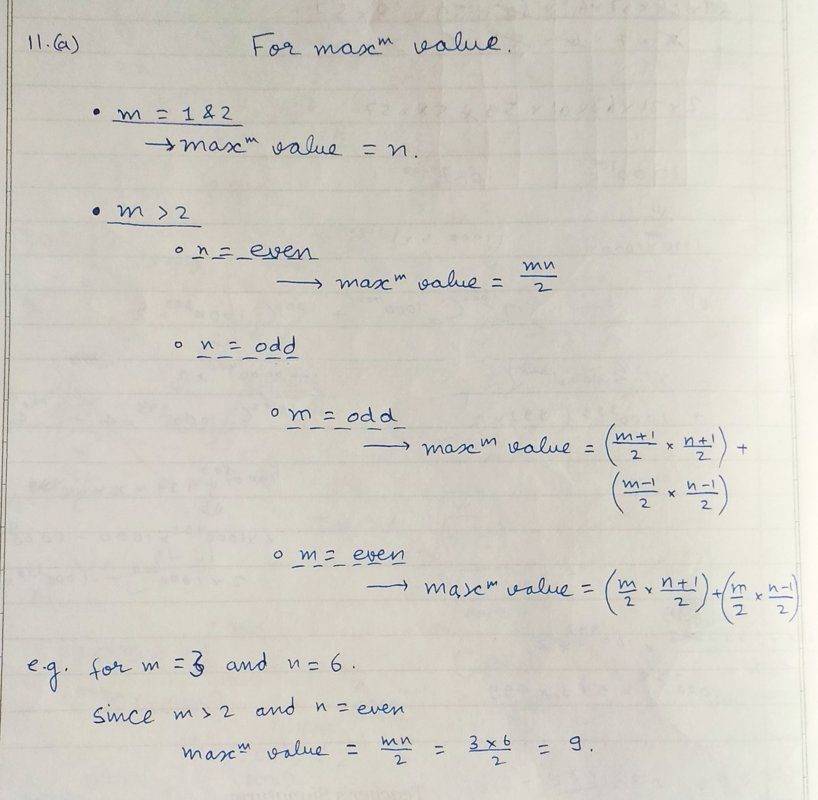 11.(a) For maxᵐ value.
• m = 1 & 2
→ maxᵐ value = n.
• m > 2
∘ n = even
→ maxᵐ value = mn/2
∘ n = odd
∘ m = odd
→ maxᵐ value = (m+1/2 × n+1/2) +
(m-1/2 × n-1/2)
∘ m = even
→ maxᵐ value = (m/2 × n+1/2) + (m/2 × n-1/2)
e.g. for m = 3 and n = 6.
since m > 2 and n = even
maxᵐ value = mn/2 = 3×6/2 = 9.